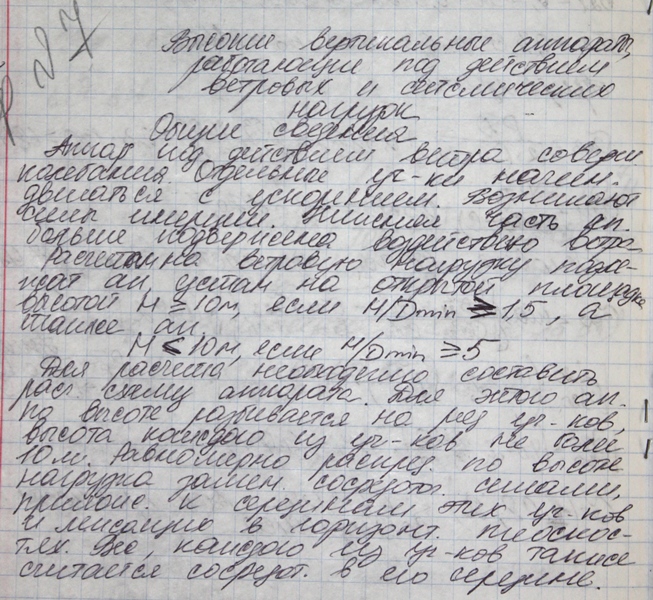 №7
Высокие вертикальные аппараты,
работающие под действием
ветровых и сейсмических
нагрузк
Общие сведения
Аппар под действием ветра соверш
колебания. Отдельные уч-ки начин.
двигаться с ускорением. Возникают
силы инерции. Нижняя часть ап.
больше подвержена воздейстию ветра
Расчетам на ветровую нагрузку подле-
жат ап, устан на открытой площадке
высотой H ≥ 10м, если H/Dmin ≥ 1,5, а
также ап.
H < 10м, если H/Dmin ≥ 5
Для расчета необходимо составить
рас схему аппарата. Для этого ап.
по высоте разбивается на ряд уч-ков,
высота каждого из уч-ков не более
10м. Равномерно распред. по высоте
нагрузка замен. сосредот. силами,
прилож. к серединам этих уч-ков
и лежащию в горизонт. плоскос-
тях. Вес, каждого из уч-ков также
считается сосредот. в его середине.